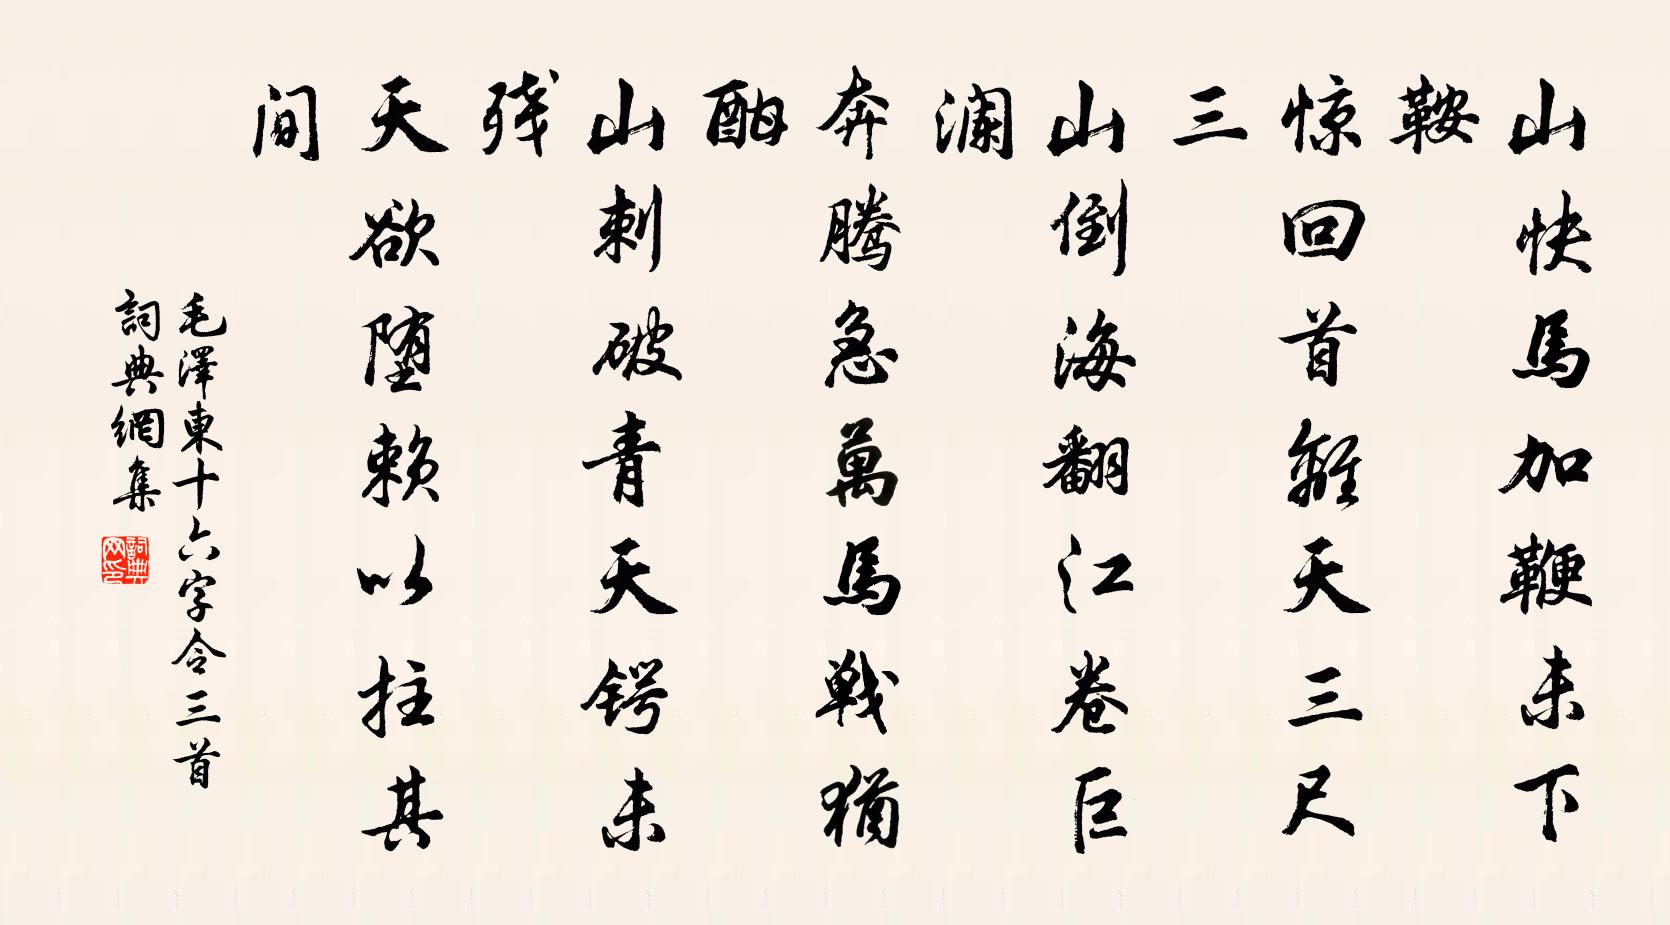 山快馬加鞭未下
鞍
惊回首離天三尺
三
山倒海翻江卷巨
澜
奔腾急萬馬戦猶
酣
山刺破青天锷未
残
天欲堕赖以拄其
間
毛澤東十六字令三首
詞典網集
詞典网印